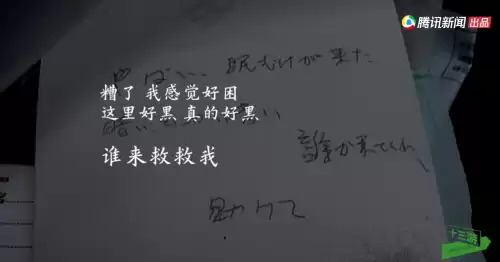 腾讯新闻 出品
やばい、眠気が来た
糟了 我感觉好困
这里好黑 真的好黑
暗い
誰か来てくれ
谁来救救我
助けて
十三游